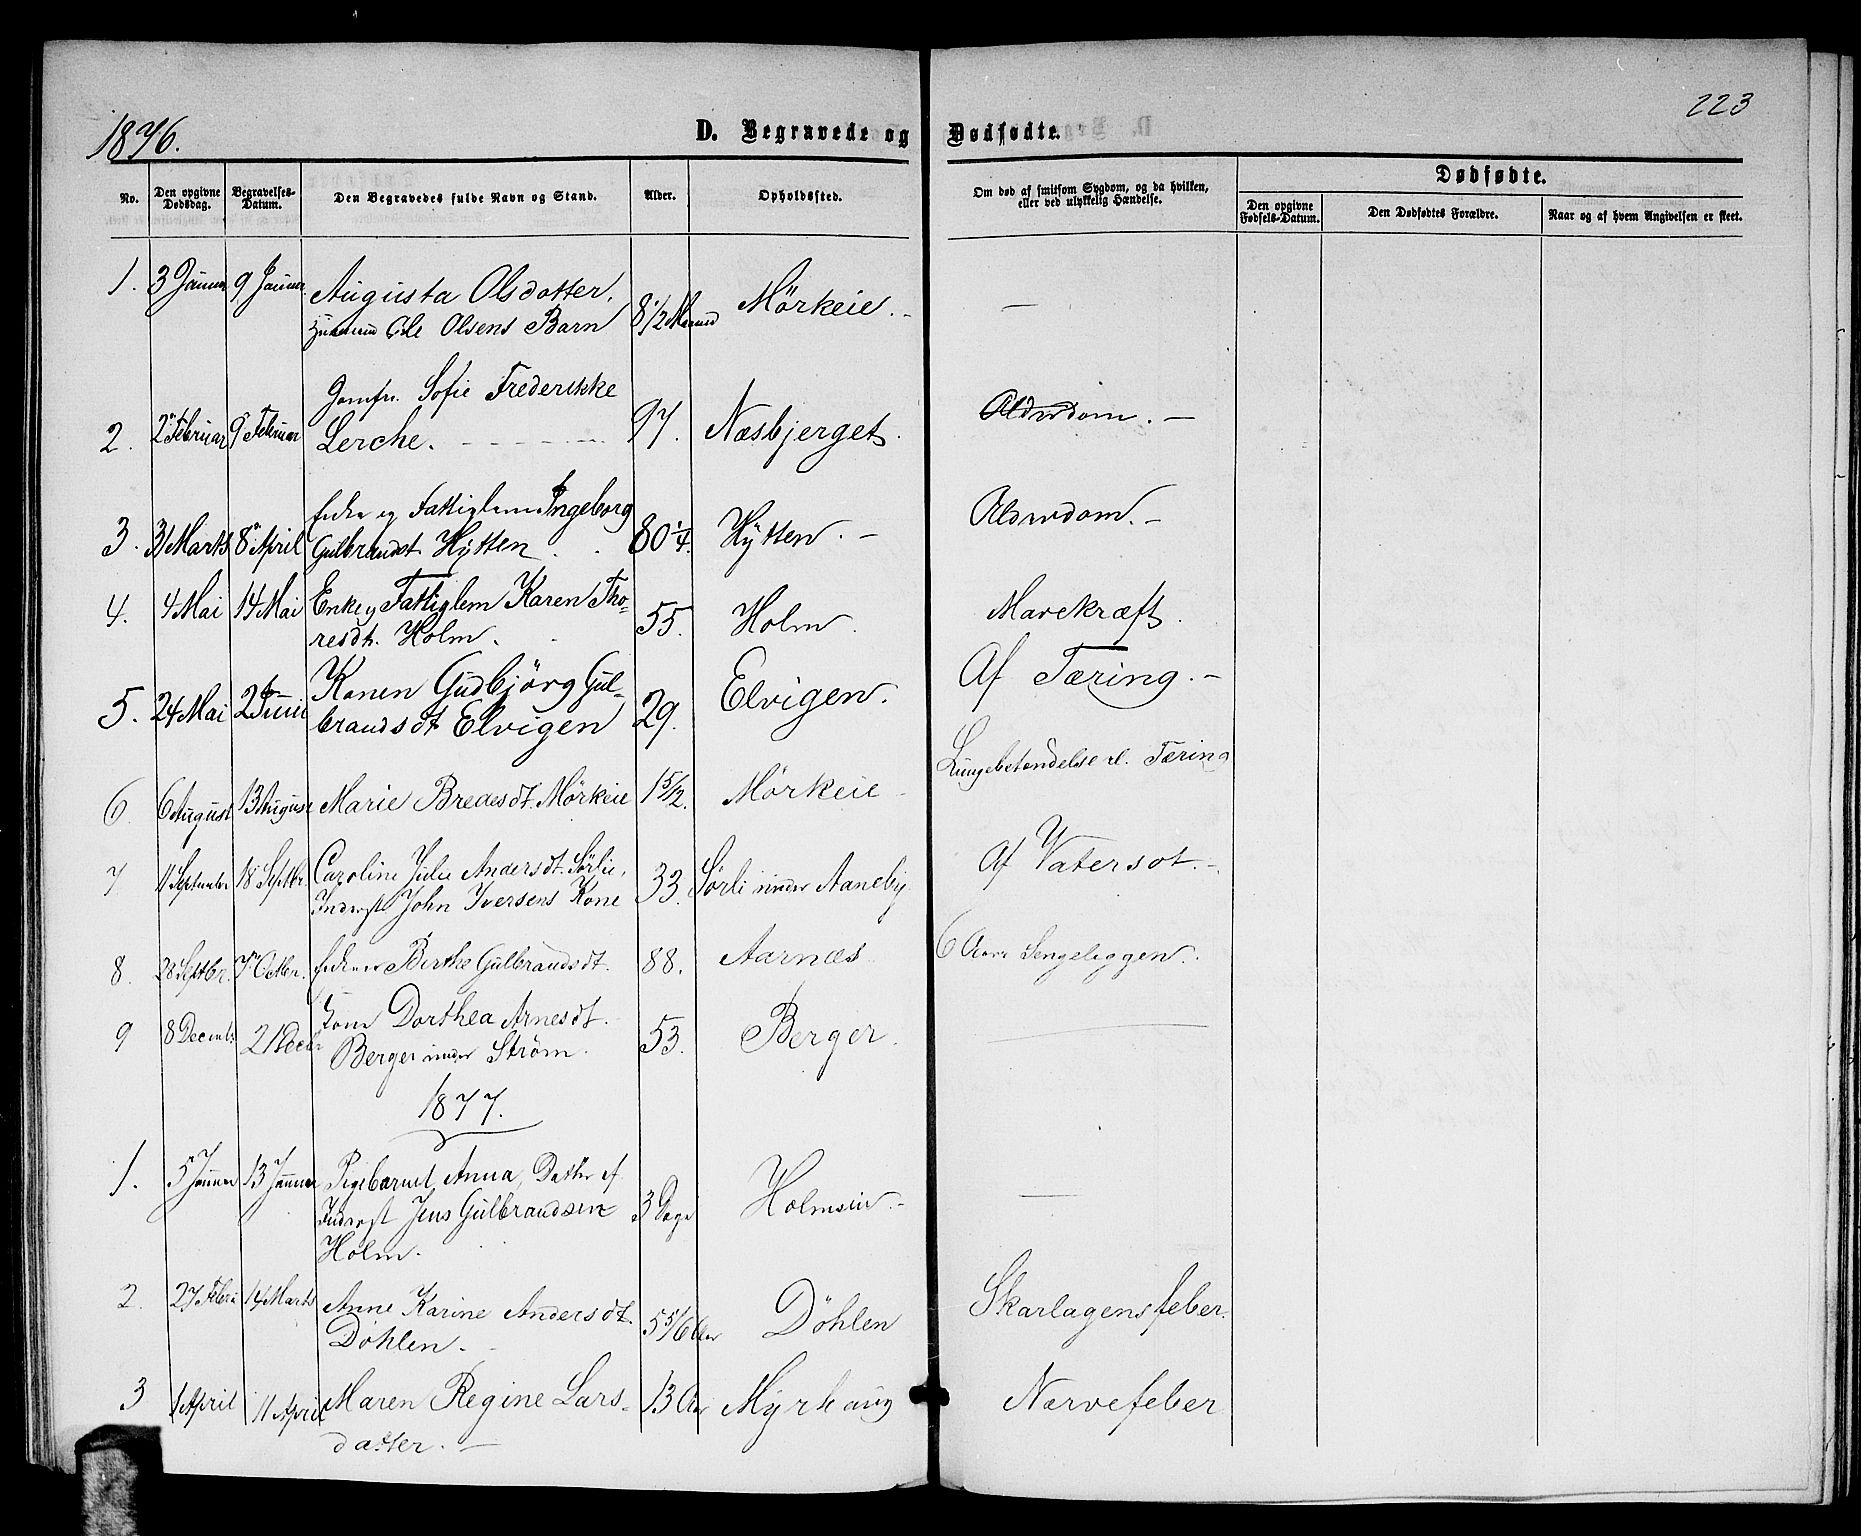 223
1876.
D. Begravede og Dødfødte.
No. Den opgivne Dødsdag. Begravelses-Datum. Den Begravedes fulde Navn og Stand. Alder. Opholdssted. Om død af smitsom Sygdom, og da hvilken, eller ved ulykkelig Hændelse. Dødfødte.
Den opgivne Fødsels-Datum. Den Dødfødtes Forældre. Naar og af hvem Angivelsen er skeet.
1. 3 Januar 9 Januar Augusta Olsdotter, 8 1/2 Maaned Mörkeie. —
Ole Olsens Barn
2. 2 Februar 9 Februar Jomfr. Sofie Frederikke 97. Næsbjerget. Alderdom. —
Lerche.
3. 31 Marts 8 April Enke og Fattiglem Ingeborg 80 1/4. Hÿtten. — Alderdom. —
Gulbrandsdt Hÿtten.
4. 4 Mai 14 Mai Enke og Fattiglem Karen Tho- 55. Holm. Mavekræft.
resdt. Holm.
5. 24 Mai 2 Juni Konen Gudbjörg Gul- 29. Elvigen. Af Tæring. —
brandsdt Elvigen
6. 6 August 13 August Marie Bredesdt. Mörkeie 1 5/12. Mörkeie Lungebetændelse el. Tæring
7 11 September 18 Septbr. Caroline Julie Andersdt. Sörlie, 33. Sörli under Aaneby Af Vatersot. —
Inderst John Iversens Kone
8. 28 Septbr. 7 Octbr. Enken Berthe Gulbrandsdt. 88. Aarnæs 6 Aars Sengeliggen.
9 8 Decemb 21 Decbr Dorthea Arnesdt. 53. Berger.
Berger under Ström.
1877.
1. 5 Januar 13 Januar Pigebarnet Anna, Datter af 3 Dage Holmseie. — —
Inderst Jens Gulbrandsen
Holm.
2. 27 Febr 14 Marts Anne Karine Andersdt. 5 5/6 Aar Döhlen Skarlagensfeber.
Döhlen.
3 1 April 11 April Maren Regine Lars- 13 Aar Myrhaug Nervefeber
datter. —